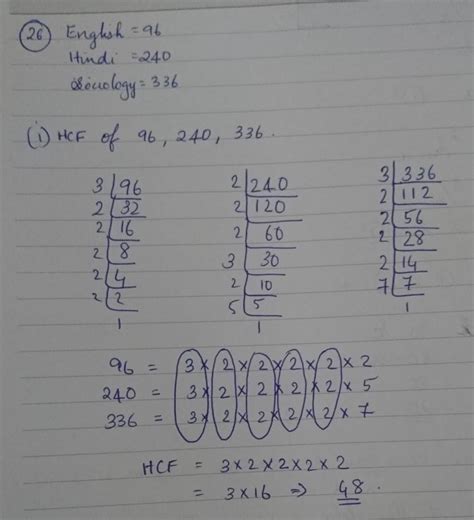 26 English = 96
Hindi = 240
Sociology = 336
(i) HCF of 96, 240, 336.
3 | 96
2 | 32
2 | 16
2 | 8
2 | 4
2 | 2
1
2 | 240
2 | 120
2 | 60
3 | 30
2 | 10
5 | 5
1
3 | 336
2 | 112
2 | 56
2 | 28
2 | 14
7 | 7
1
96 = 3 × 2 × 2 × 2 × 2 × 2
240 = 3 × 2 × 2 × 2 × 2 × 5
336 = 3 × 2 × 2 × 2 × 2 × 7
HCF = 3 × 2 × 2 × 2 × 2
= 3 × 16 ⇒ 48.